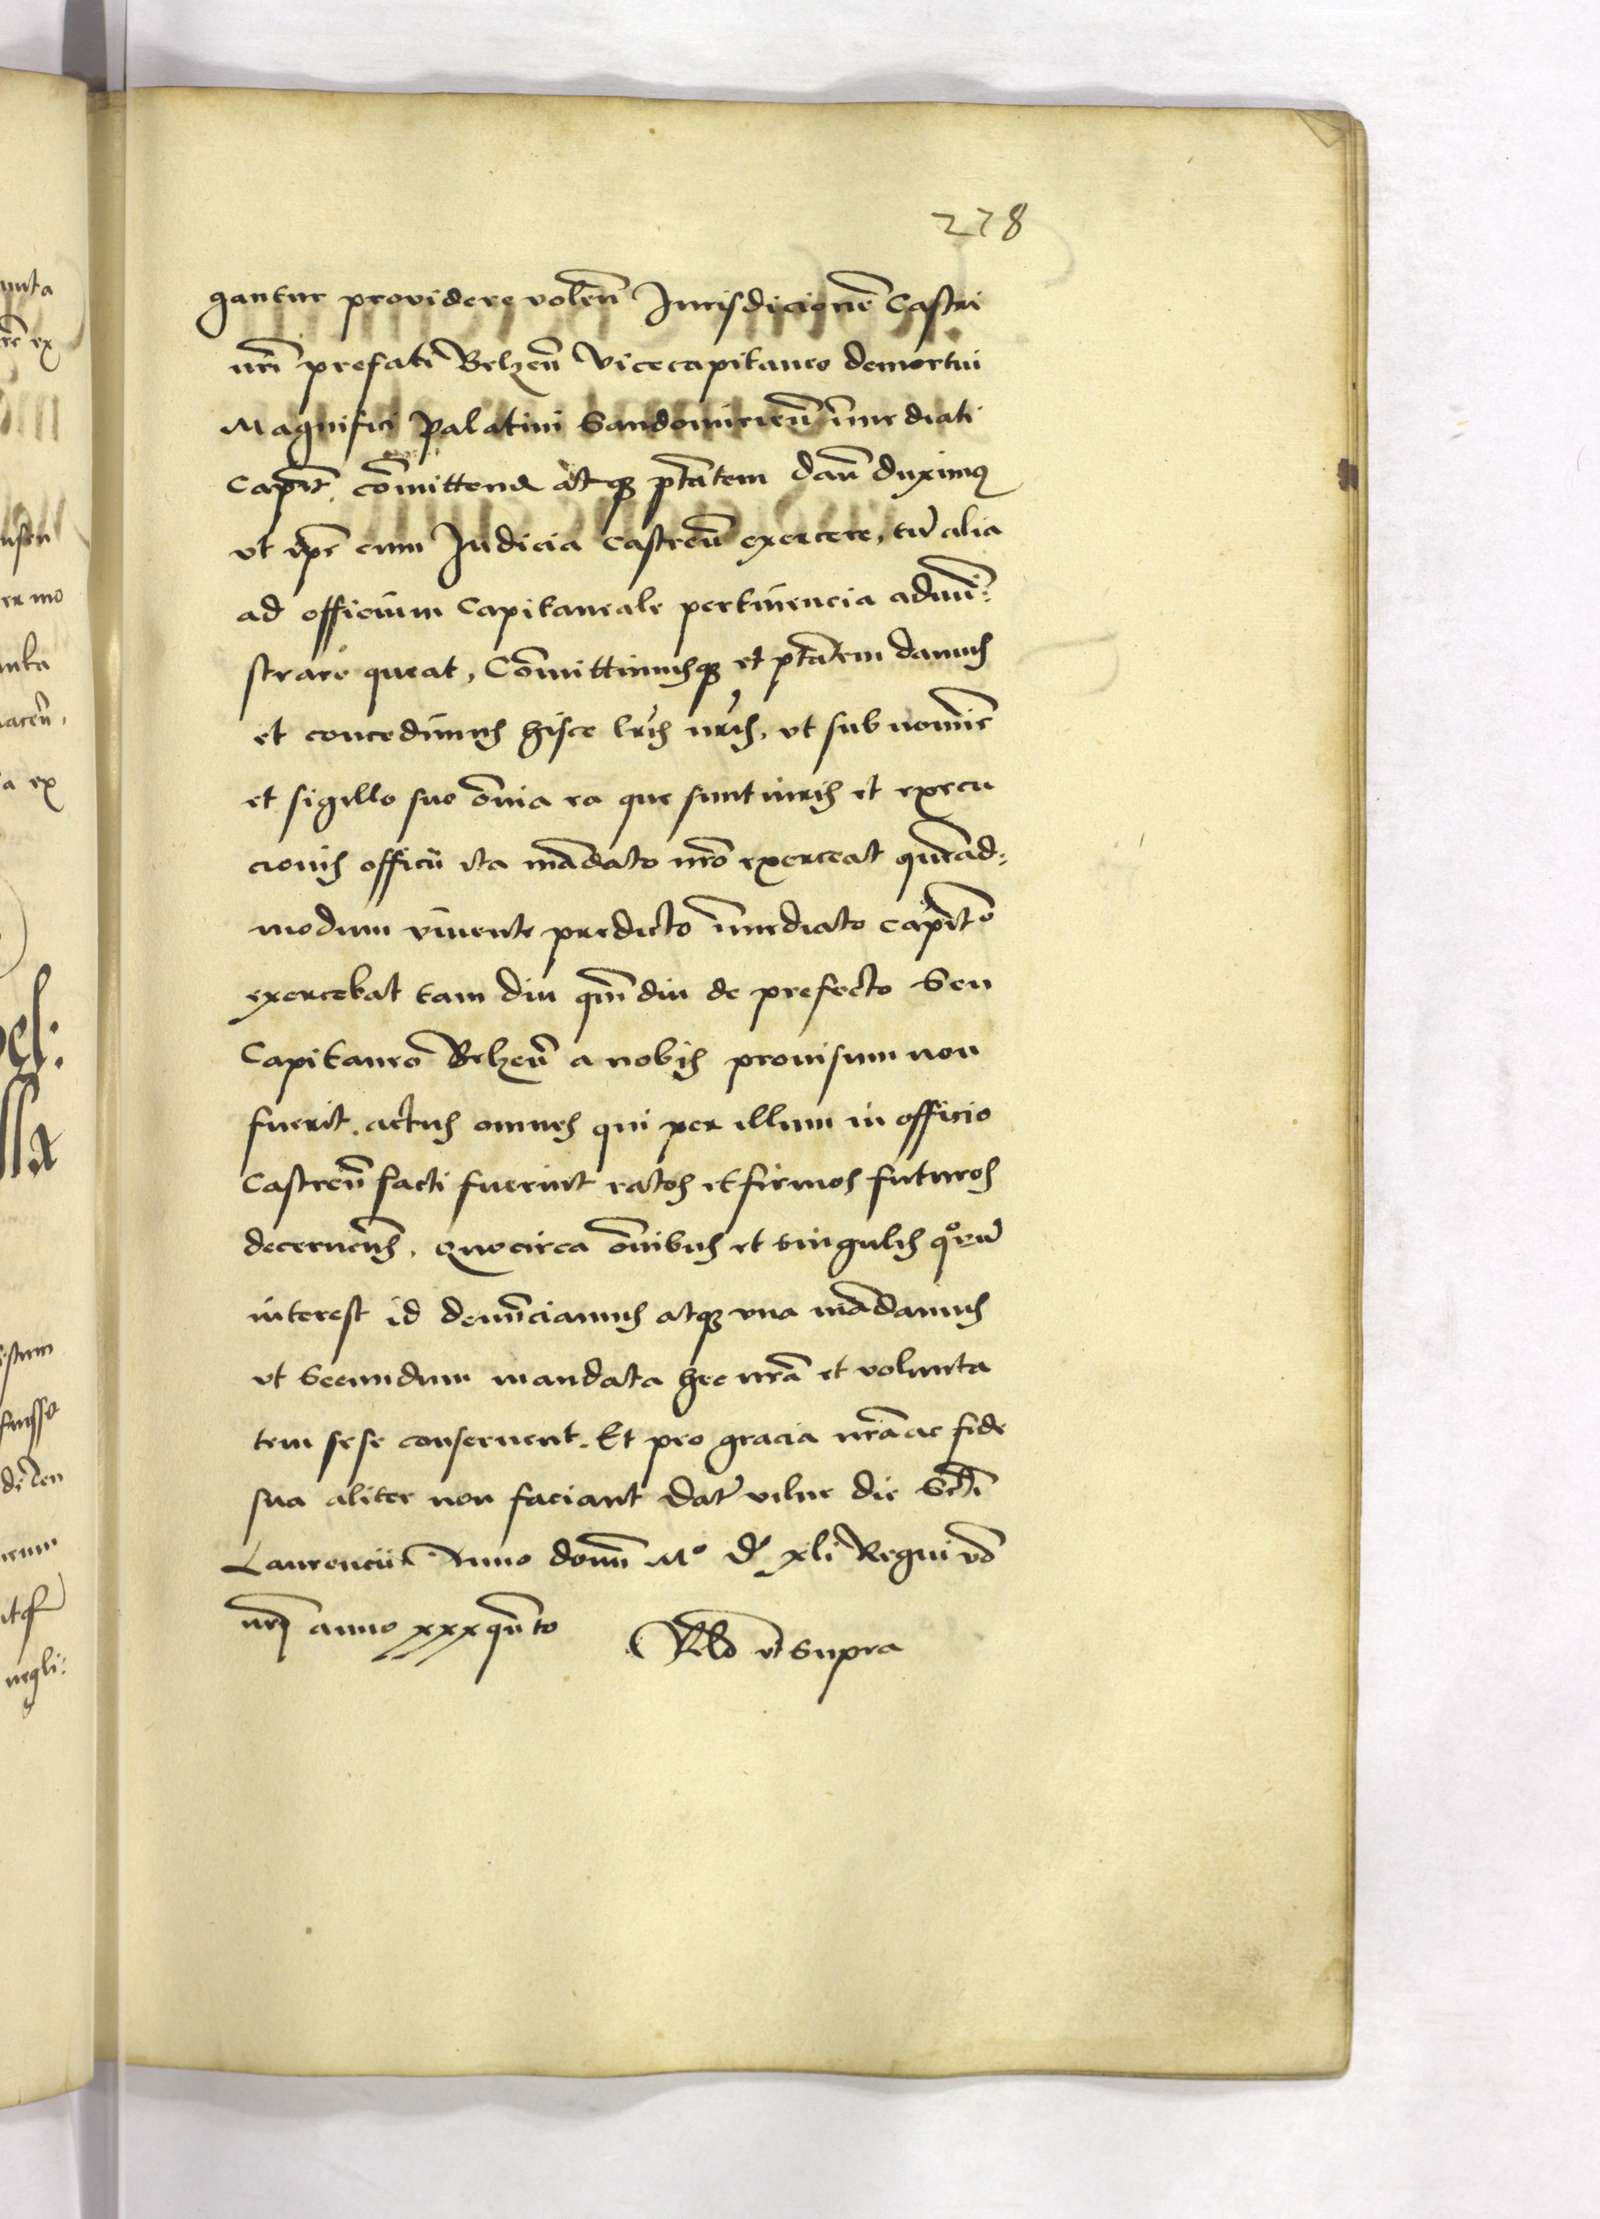 228
gantur providere volen̄ Jurisdicionē Castri
nr̄i prefati Belzen̄ Vicecapitaneo demortui
Magnifici Palatini Sandomirien̄ im̄ediati
Capit̄. com̄ittend atq̨ ptātem dan̄ duximus
vt ip̄e cum Judicia castren̄ exercere, tū alia
ad officium Capitaneale pertinencia admi͞ni:
strare queat, Com̄ittimusq̨ et ptātem damus
et concedimus hisce lr̄is nr̄is, vt sub nomīe
et sigillo suo om̄ia ea que sunt iuris et execu
cionis officii ita mādato nr̄o exerceat quēad:
modum viuente predicto im̄ediato Capit̄o
exercebat tam diu qm̄ diu de prefecto Seu
Capitaneo Belzen̄ a nobis prouisum non
fuerit. actus omnes qui per illum in officio
Castren̄ facti fuerint ratos et firmos futuros
decernen̄s. Quocirca om̄ibus et singulis quorū
interest id denūnciamus atq̨ vna mādamus
vt Secundum mandata hec nr̄a et volunta
tem sese conseruent. Et pro gracia nr̄a ac fide
sua aliter non faciant Dat̄ vilne die Sct̄i
Laurencii Anno domī M° D° xli Regni vō
nr̄i anno xxxquīto Rel̄o vt Supra